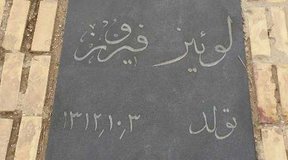 لوئیز فیروز
تولد ۱۳۱۲٫۱۰٫۳